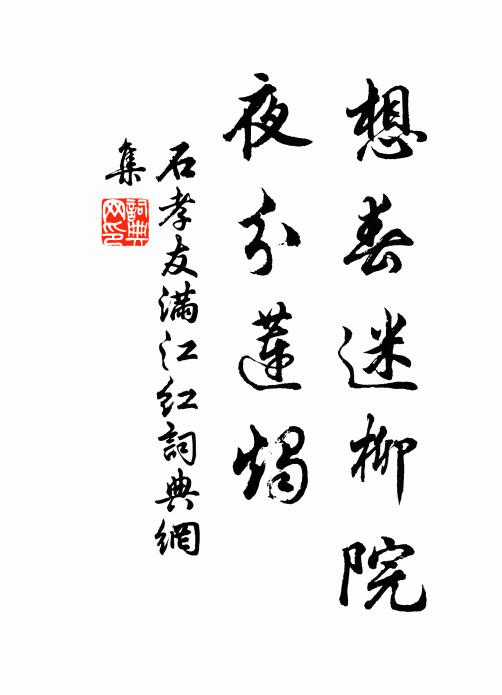 想春迷柳院
夜分蓮燭
石孝友滿江紅詞典網
集
詞典网印